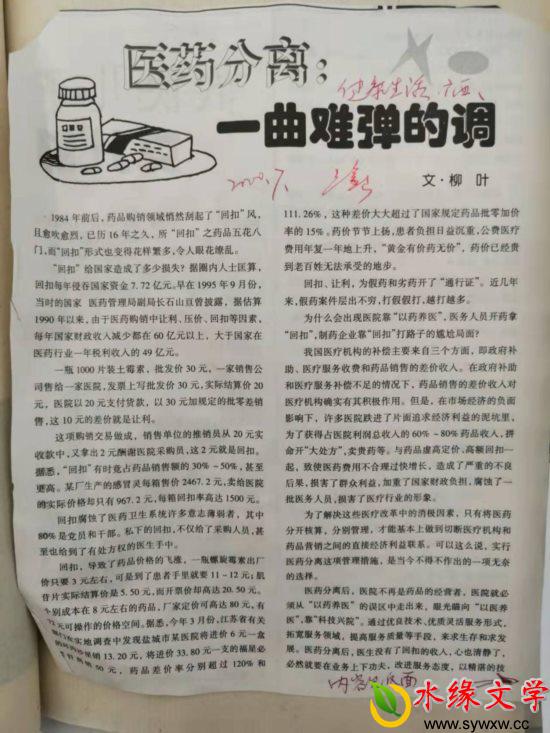 医药分离：
一曲难弹的调
健康生活
2000.7.
文·柳 叶
1984 年前后，药品购销领域悄然刮起了“回扣”风，
且愈吹愈烈，已历 16 年之久，所“回扣”之药品五花八
门，而“回扣”形式也变得花样繁多，令人眼花缭乱。
“回扣”给国家造成了多少损失？据圈内人士匡算，
回扣每年侵吞国家资金 7.72 亿元。早在 1995 年 9 月份，
当时的国家 医药管理局副局长石山豆曾披露，据估算
1990 年以来，由于医药购销中让利、压价、回扣等因素，
每年国家财政收入减少都在 60 亿元以上，大于国家在
医药行业一年税利收入的 49 亿元。
一瓶 1000 片装土霉素，批发价 30 元，一家销售公
司售给一家医院，发票上写批发价 30 元，实际结算价 20
元，医院以 20 元支付货款，以 30 元加规定的批零差销
售，这 10 元的差价就是让利。
这项购销交易做成，销售单位的推销员从 20 元实
收款中，又拿出 2 元酬谢医院采购员，这 2 元就是回扣。
据悉，“回扣”有时竟占药品销售额的 30%－50%，甚至
更高。某厂生产的感冒灵每箱售价 2467.2 元，卖给医院
的实际价格却只有 967.2 元，每箱回扣率高达 1500 元。
回扣腐蚀了医药卫生系统许多意志薄弱者，其中
80%是党员和干部。私下的回扣，不仅给了采购人员，甚
至也给到了有处方权的医生手中。
回扣，导致了药品价格的飞涨，一瓶螺旋霉素出厂
价只要 3 元左右，可是到了患者手里就要 11－12 元；肌
苷片实际结算价是 5.50 元，而开票价却高达 20.50 元。
个别成本在 8 元左右的药品，厂家定价可高达 80 元，有
72元可操作的价格空间。据悉，今年 3 月份，江苏省有关
部门在实地调查中发现盐城市某医院将进价 6 元一盒
13.20 元，将进价 33.80 元一支的福星必
50 元，药品差价率分别超过 120%和
111.26%，这种差价大大超过了国家规定药品批零加价
率的 15%。药价节节上扬，患者负担日益沉重，公费医疗
费用年复一年地上升，“黄金有价药无价”，药价已经贵
到老百姓无法承受的地步。
回扣、让利，为假药和劣药开了“通行证”。近几年
来，假药案件层出不穷，打假假打，越打越多。
为什么会出现医院靠“以药养医”，医务人员开药拿
“回扣”，制药企业靠“回扣”打路子的尴尬局面？
我国医疗机构的补偿主要来自三个方面，即政府补
助、医疗服务收费和药品销售的差价收入。在政府补助
和医疗服务补偿不足的情况下，药品销售的差价收入对
医疗机构确实有其积极作用。但是，在市场经济的负面
影响下，许多医院跌进了片面追求经济利益的泥坑里，
为了获得占医院利润总收入的 60%－80%药品收入，拼
命开“大处方”，卖贵药等。与药品虚高定价，高额回扣一
起，致使医药费用不合理过快增长，造成了严重的不良
后果，损害了群众利益，加重了国家财政负担，腐蚀了一
批医务人员，损害了医疗行业的形象。
为了解决这些医疗改革中的消极因素，只有将医药
分开核算，分别管理，才能基本上做到切断医疗机构和
药品营销之间的直接经济利益联系。可以这么说，实行
医药分离这项管理措施，是当今不得不作出的一项无奈
的选择。
医药分离后，医院不再是药品的经营者，医院就必
须从“以药养医”的误区中走出来，眼光瞄向“以医养
医”，靠“科技兴院”。通过优良技术、优质灵活服务形式，
拓宽服务领域，提高服务质量等手段，来求生存和求发
展。医药分离后，医生没有了回扣的收入，心也清静了，
必然就要在业务上下功夫，改进服务态度，以精湛的技
水缘文学
www.sywxw.com